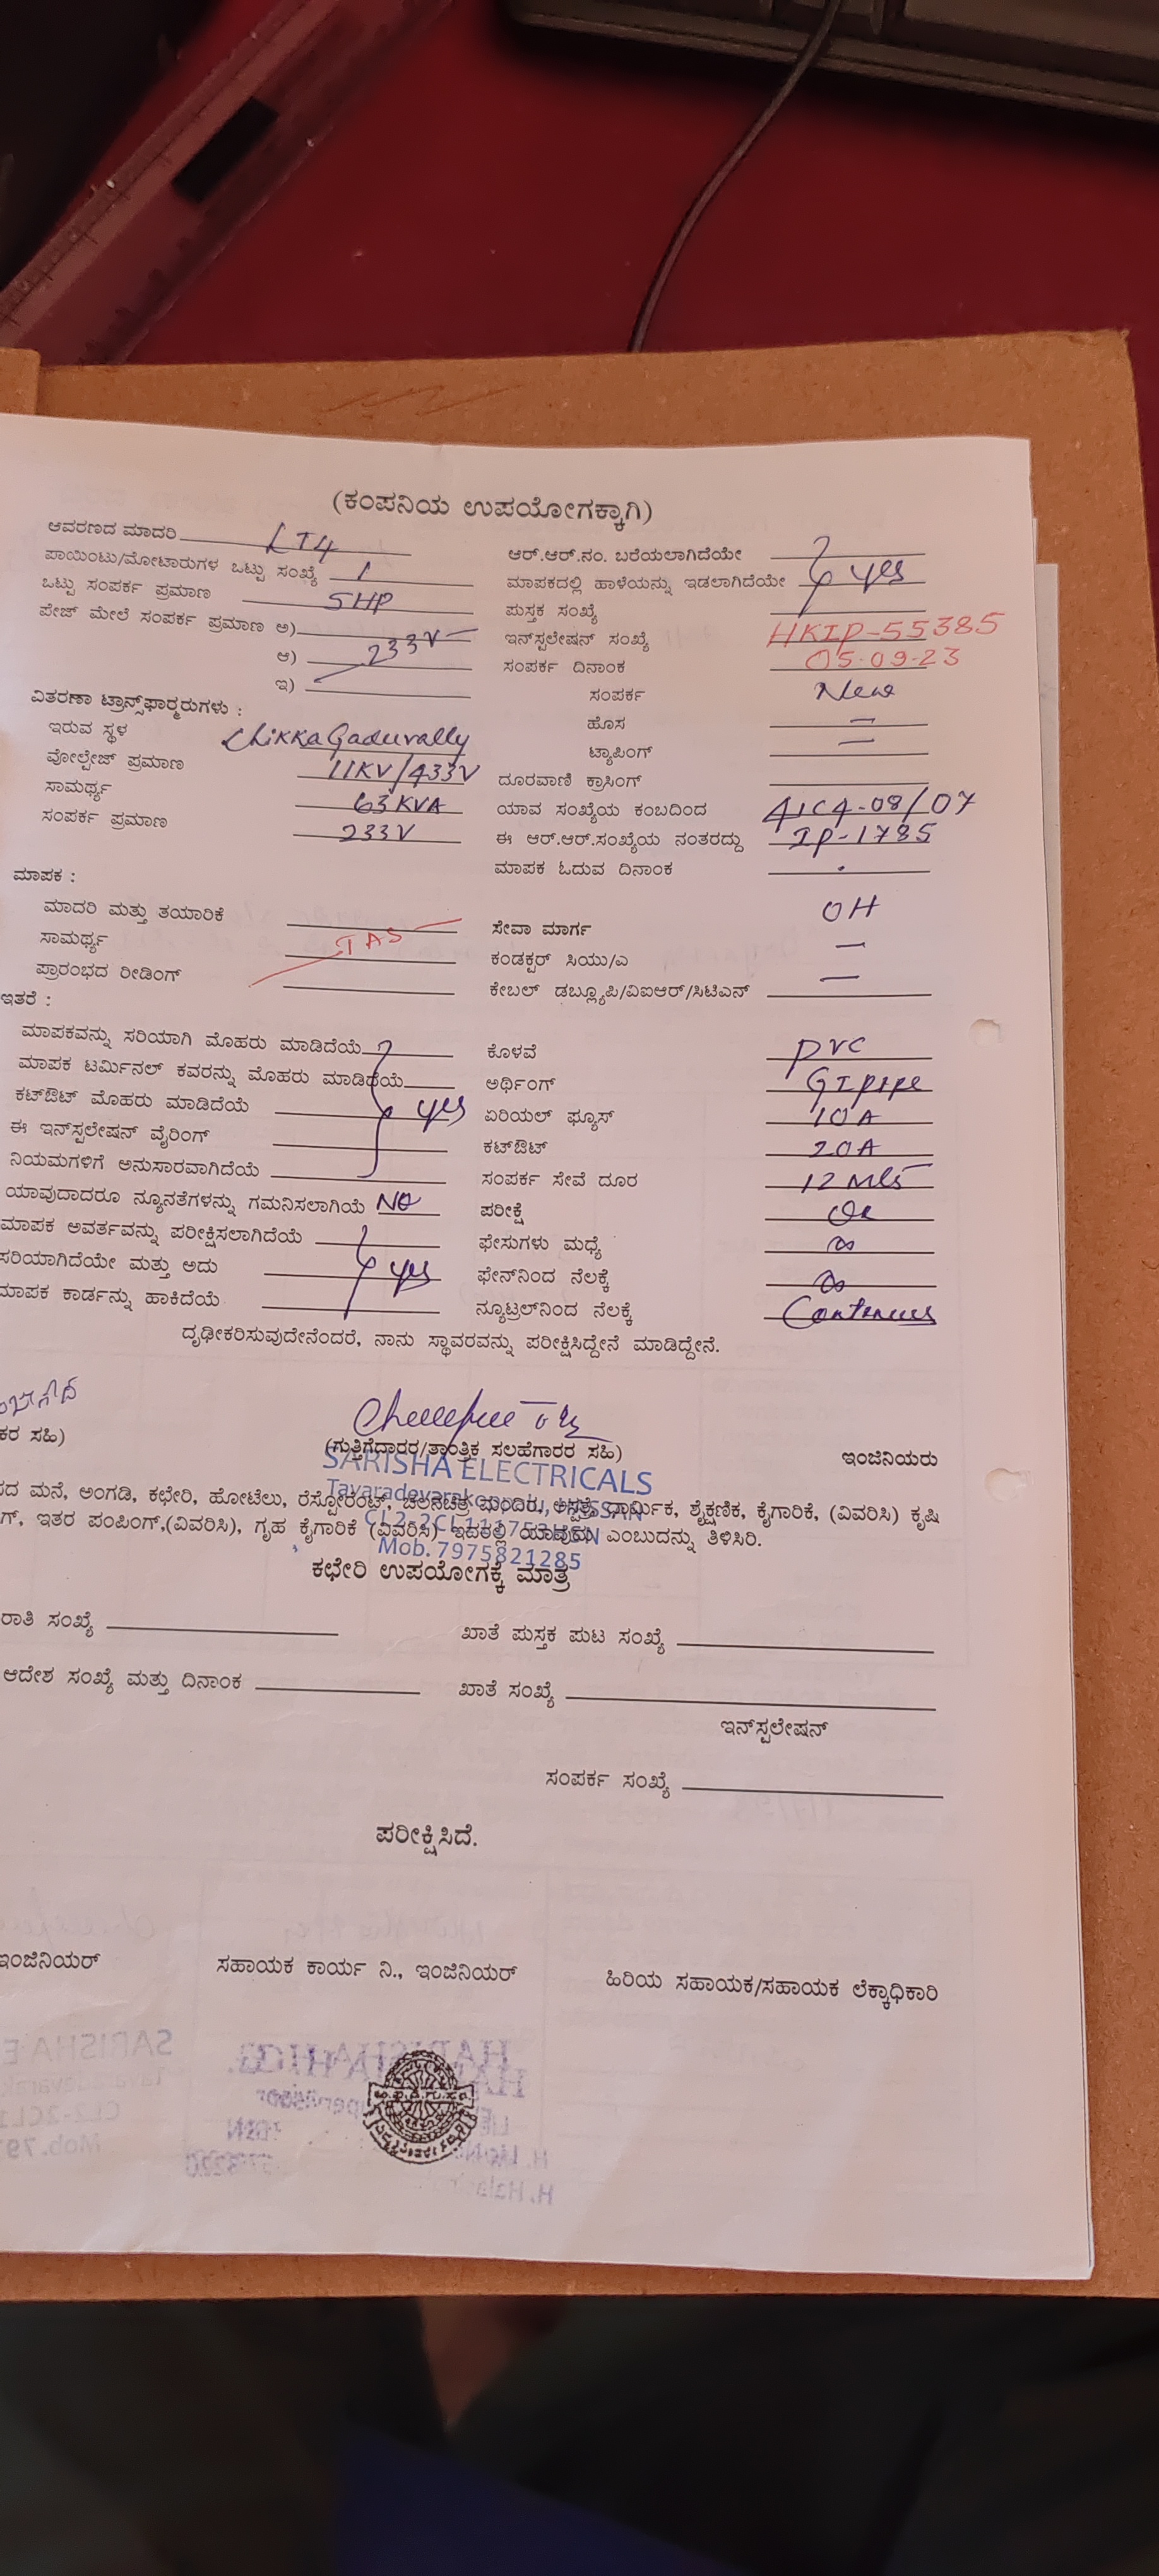 (ಕಂಪನಿಯ ಉಪಯೋಗಕ್ಕಾಗಿ)
ಆವರಣದ ಮಾದರಿ LT4
ಪಾಯಿಂಟು/ಮೋಟಾರುಗಳ ಒಟ್ಟು ಸಂಖ್ಯೆ 1
ಒಟ್ಟು ಸಂಪರ್ಕ ಪ್ರಮಾಣ 5HP
ಪೇಜ್ ಮೇಲೆ ಸಂಪರ್ಕ ಪ್ರಮಾಣ ಅ)
ಆ) 233V
ಇ)
ವಿತರಣಾ ಟ್ರಾನ್ಸ್‌ಫಾರ್‍ಮರುಗಳು :
ಇರುವ ಸ್ಥಳ Chikka Gaduvally
ವೋಲ್ಟೇಜ್ ಪ್ರಮಾಣ 11KV/433V
ಸಾಮರ್ಥ್ಯ 63 KVA
ಸಂಪರ್ಕ ಪ್ರಮಾಣ 233V
ಮಾಪಕ :
ಮಾದರಿ ಮತ್ತು ತಯಾರಿಕೆ
ಸಾಮರ್ಥ್ಯ
ಪ್ರಾರಂಭದ ರೀಡಿಂಗ್
ಇತರೆ :
ಮಾಪಕವನ್ನು ಸರಿಯಾಗಿ ಮೊಹರು ಮಾಡಿದೆಯೆ
ಮಾಪಕ ಟರ್ಮಿನಲ್ ಕವರನ್ನು ಮೊಹರು ಮಾಡಿದೆಯೆ
ಕಟ್‌ಔಟ್ ಮೊಹರು ಮಾಡಿದೆಯೆ yes
ಈ ಇನ್‌ಸ್ಪಲೇಷನ್ ವೈರಿಂಗ್
ನಿಯಮಗಳಿಗೆ ಅನುಸಾರವಾಗಿದೆಯೆ
ಯಾವುದಾದರೂ ನ್ಯೂನತೆಗಳನ್ನು ಗಮನಿಸಲಾಗಿಯೆ NO
ಮಾಪಕ ಅವರ್ತವನ್ನು ಪರೀಕ್ಷಿಸಲಾಗಿದೆಯೆ
ಸರಿಯಾಗಿದೆಯೇ ಮತ್ತು ಅದು yes
ಮಾಪಕ ಕಾರ್ಡನ್ನು ಹಾಕಿದೆಯೆ
ಆರ್.ಆರ್.ನಂ. ಬರೆಯಲಾಗಿದೆಯೇ
ಮಾಪಕದಲ್ಲಿ ಹಾಳೆಯನ್ನು ಇಡಲಾಗಿದೆಯೇ yes
ಪುಸ್ತಕ ಸಂಖ್ಯೆ
ಇನ್‌ಸ್ಪಲೇಷನ್ ಸಂಖ್ಯೆ HKIP-55385
ಸಂಪರ್ಕ ದಿನಾಂಕ 05-09-23
ಸಂಪರ್ಕ New
ಹೊಸ –
ಟ್ಯಾಪಿಂಗ್ –
ದೂರವಾಣಿ ಕ್ರಾಸಿಂಗ್
ಯಾವ ಸಂಖ್ಯೆಯ ಕಂಬದಿಂದ
ಈ ಆರ್.ಆರ್.ಸಂಖ್ಯೆಯ ನಂತರದ್ದು IP-1785
ಮಾಪಕ ಓದುವ ದಿನಾಂಕ
ಸೇವಾ ಮಾರ್ಗ OH
ಕಂಡಕ್ಟರ್ ಸಿಯು/ಎ –
ಕೇಬಲ್ ಡಬ್ಲ್ಯೂಪಿ/ವಿಐಆರ್/ಸಿಟಿಎನ್ –
ಕೊಳವೆ PVC
ಅರ್ಥಿಂಗ್ GI pipe
ಏರಿಯಲ್ ಫ್ಯೂಸ್ 10A
ಕಟ್‌ಔಟ್ 20A
ಸಂಪರ್ಕ ಸೇವೆ ದೂರ 12 Mts
ಪರೀಕ್ಷೆ
ಫೇಸುಗಳು ಮಧ್ಯೆ ∞
ಫೇನ್‌ನಿಂದ ನೆಲಕ್ಕೆ ∞
ನ್ಯೂಟ್ರಲ್‌ನಿಂದ ನೆಲಕ್ಕೆ
ದೃಢೀಕರಿಸುವುದೇನೆಂದರೆ, ನಾನು ಸ್ಥಾವರವನ್ನು ಪರೀಕ್ಷಿಸಿದ್ದೇನೆ ಮಾಡಿದ್ದೇನೆ.
ಕರ ಸಹಿ)
(ಗುತ್ತಿಗೆದಾರರ/ತಾಂತ್ರಿಕ ಸಲಹೆಗಾರರ ಸಹಿ)
ಇಂಜಿನಿಯರು
SARISHA ELECTRICALS
ಮನೆ, ಅಂಗಡಿ, ಕಛೇರಿ, ಹೋಟೆಲು, ರೆಸ್ಟೋರೆಂಟ್, ಚಲನಚಿತ್ರ ಮಂದಿರ, ಆಸ್ಪತ್ರೆ, ಧಾರ್ಮಿಕ, ಶೈಕ್ಷಣಿಕ, ಕೈಗಾರಿಕೆ, (ವಿವರಿಸಿ) ಕೃಷಿ
ಇತರ ಪಂಪಿಂಗ್,(ವಿವರಿಸಿ), ಗೃಹ ಕೈಗಾರಿಕೆ (ವಿವರಿಸಿ) ಇದರಲ್ಲಿ ಯಾವುದು ಎಂಬುದನ್ನು ತಿಳಿಸಿರಿ.
Mob. 7975821285
ಕಛೇರಿ ಉಪಯೋಗಕ್ಕೆ ಮಾತ್ರ
ರಾತಿ ಸಂಖ್ಯೆ
ಖಾತೆ ಪುಸ್ತಕ ಪುಟ ಸಂಖ್ಯೆ
ಆದೇಶ ಸಂಖ್ಯೆ ಮತ್ತು ದಿನಾಂಕ
ಖಾತೆ ಸಂಖ್ಯೆ
ಇನ್‌ಸ್ಪಲೇಷನ್
ಸಂಪರ್ಕ ಸಂಖ್ಯೆ
ಪರೀಕ್ಷಿಸಿದೆ.
ಇಂಜಿನಿಯರ್
ಸಹಾಯಕ ಕಾರ್ಯ ನಿ., ಇಂಜಿನಿಯರ್
ಹಿರಿಯ ಸಹಾಯಕ/ಸಹಾಯಕ ಲೆಕ್ಕಾಧಿಕಾರಿ